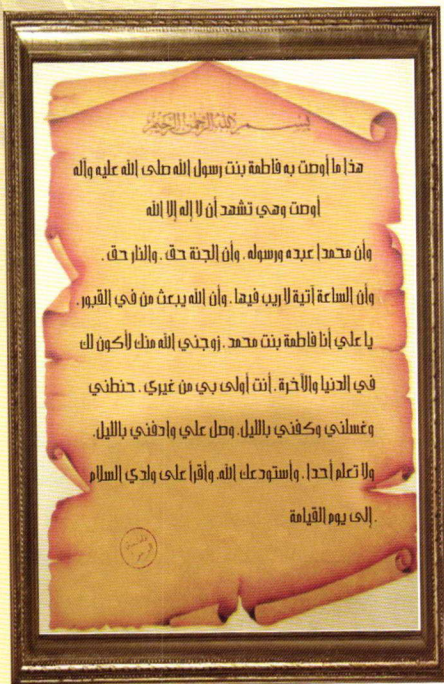 بسم الله الرحمن الرحيم
هذا ما أوصت به فاطمة بنت رسول الله صلى الله عليه وآله
أوصت وهي تشهد أن لا إله إلا الله
وأن محمدا عبده ورسوله. وأن الجنة حق. والنار حق.
وأن الساعة آتية لا ريب فيها. وأن الله يبعث من في القبور.
يا علي أنا فاطمة بنت محمد. زوجني الله منك لأكون لك
في الدنيا والآخرة. أنت أولى بي من غيري. حنطني
وغسلني وكفني بالليل. وصل علي وادفني بالليل.
ولا تعلم أحدا. وأستودعك الله. وأقرأ على ولدي السلام
إلى يوم القيامة.